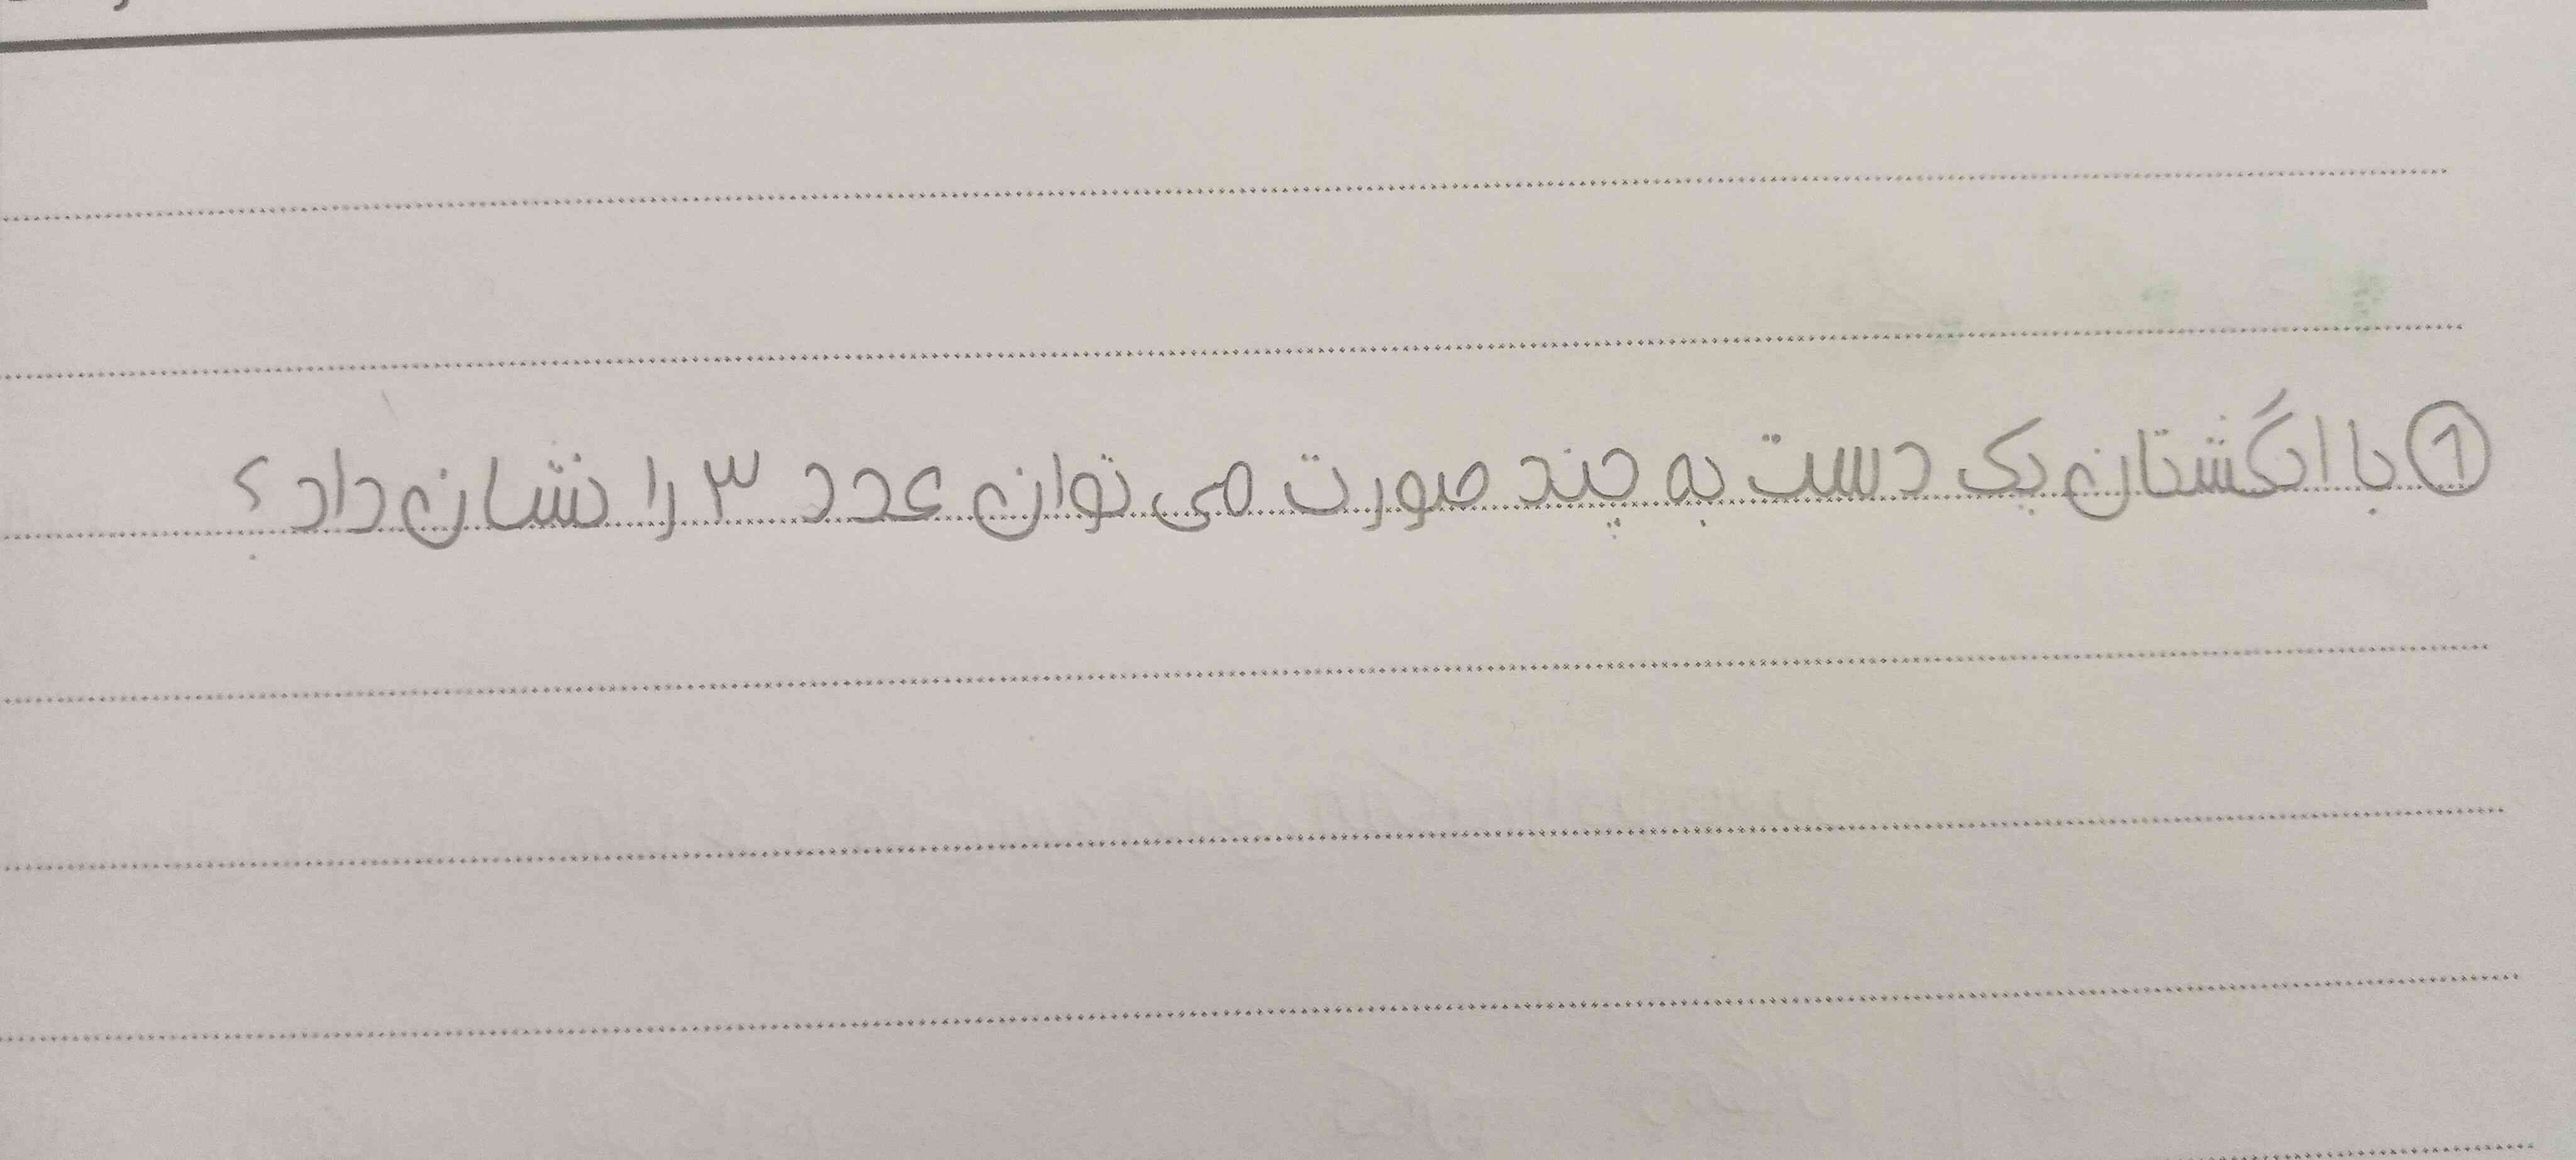 ① با انگشتان یک دست به چند صورت می توان عدد ۳ را نشان داد؟